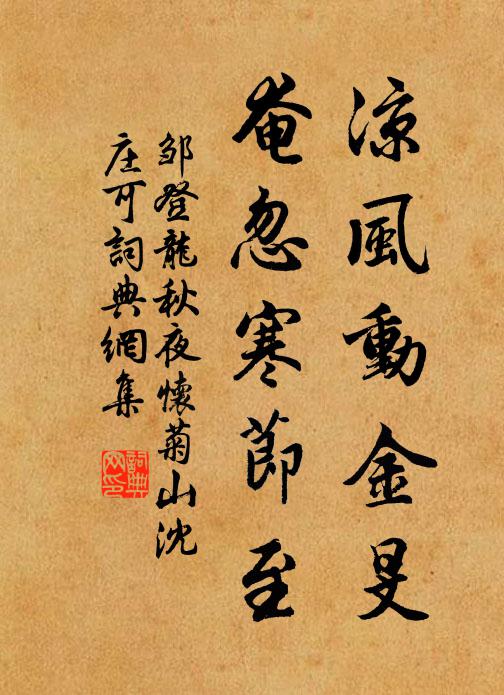 涼風動金旻
奄忽寒節至
邹登龍秋夜懷菊山沈
庄可詞典網集
詞典网印